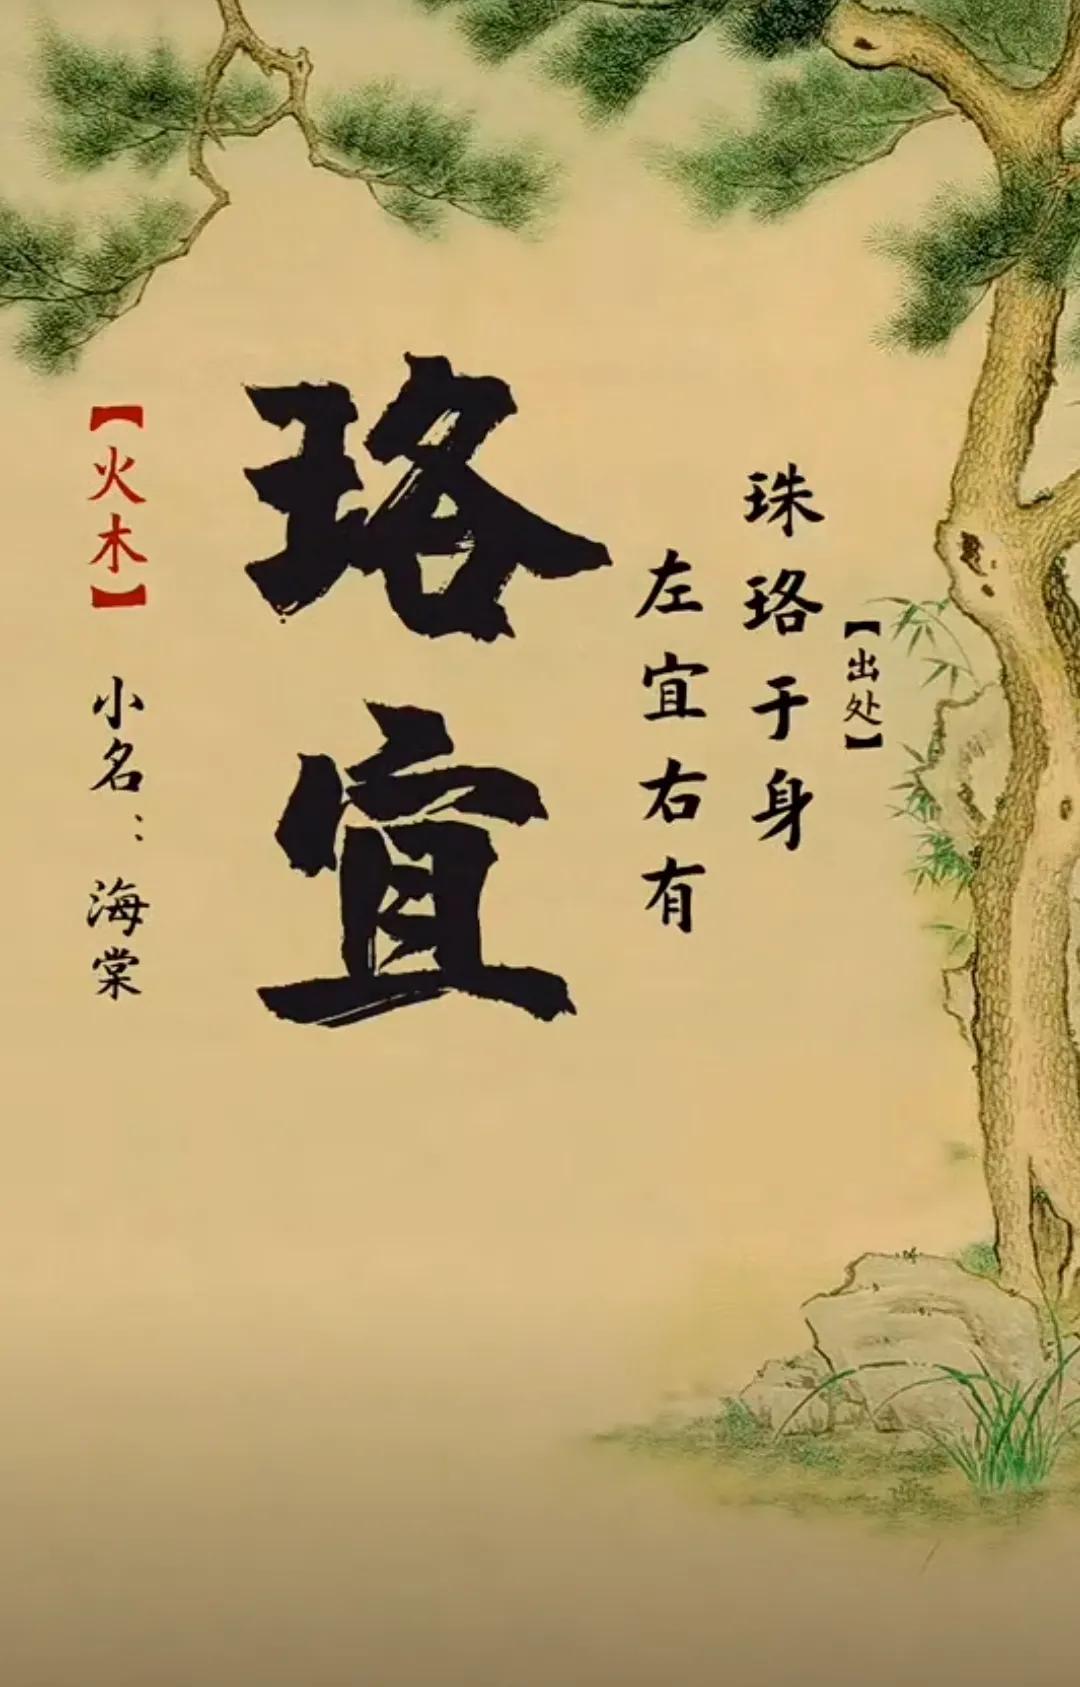 【出处】
珠珞于身
左宜右有
珞宜
【火木】
小名：海棠